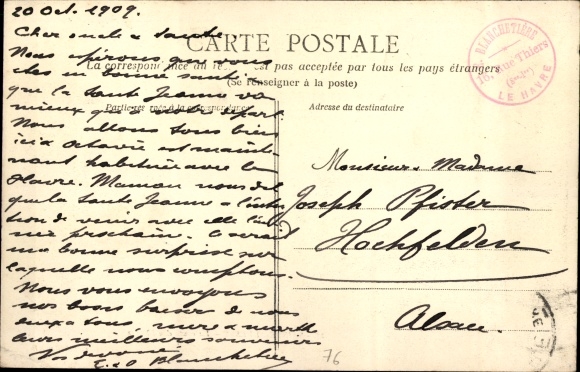 20 Oct. 1909.
Cher oncle & tante
Nous espérons que vous
êtes en bonne santé
que la tante Jeanne va
mieux qu'à votre départ.
Nous allons tous bien
ici & Octavie est mainte-
nant habituée avec le
Havre. Maman nous dit
que la tante Jeanne a l'inten-
tion de venir avec elle l'an-
née prochain. Ce serait
une bonne surprise sur
laquelle nous comptons.
Nous vous envoyons
nos bons baiser de nous
deux à tous, mère &
leurs meilleurs souvenirs
Vos dévoués
E. & O Blanchetière
CARTE POSTALE
La correspondance au re est pas acceptée par tous les pays étrangers
(Se renseigner à la poste)
Partie réservée à la correspondance
Adresse du destinataire
BLANCHETIÈRE
16, Rue Thiers
LE HAVRE
Monsieur & Madame
Joseph Pfister
Hochfelden
Alsace.
76